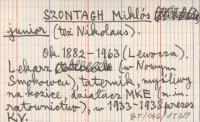 SZONTAGH Miklós
junior (też Nikolaus).
Ok. 1882-1963 (Lewocza).
Lekarz (w Nowym
Smokowcu), taternik, myśliwy
na kozice, działacz MKE (m.in.
ratownictwo), w 1933-1938 prezes
KV.